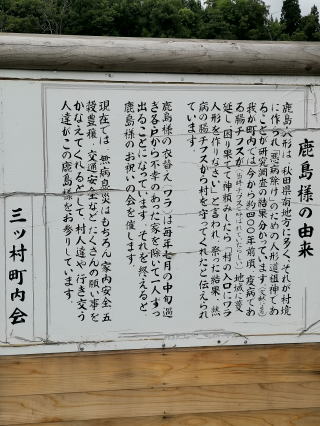 鹿島様の由来
鹿島人形は、秋田県南地方に多く、それが村境
に作られ「悪病除け」のための人形道祖神であ
ることが研究調査の結果分かっています。
我が町内では、今から約四〇〇年前頃、疫病であ
る腸チフスが 地域に蔓
延し、困り果てて神頼みしたら「村の入口にワラ
人形を作りなさい」と言われ、祭った結果、熱
病の腸チフスから村を守ってくれたと伝えられ
ています。
鹿島様の衣替え(ワラ)は毎年七月の中旬過
ぎ各戸から不幸のあった家を除いて一人ずつ
出ることになっています。それを終えると、
鹿島様のお祝いの会を催します。
現在では、無病息災はもちろん家内安全・五
穀豊穣・交通安全などたくさんの願い事を
かなえてくれるとして、村人達や行き交う
人達がこの鹿島様をお参りしています。
三ッ村町内会